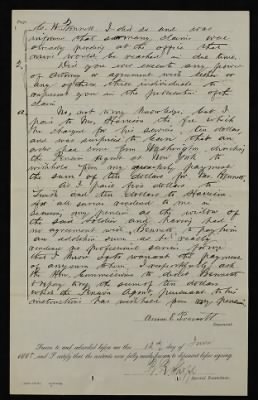 Mr. W. Bennett. I did so and was
informed that so many claims were
already pending at the office that
mine would be reached in due time.
Q. Did you ever execute any power
of attorney or agreement with either or
any of these three individuals to
represent you in the prosecution of
claim
A. No, not to my knowledge, but I
paid to Mr. Harrison the fee which
he charged for his services, ten dollars,
and was surprised to learn that an
order had come from Washington directing
the Pension Agent at New York to
withhold from my payment
the sum of ten dollars for Mr. Bennett.
As I paid five dollars to
and ten dollars to Harrison
for all services rendered to me in
securing my pension as the widow of
the said soldier and having had
no agreement with Bennett, to pay him
an additional sum, as he really
rendered no professional service
that I know of to warrant the payment
of anything to him, I respectfully ask
the Hon. Commissioner to direct Bennett
to repay me the sum of ten dollars
which the Pension Agent, pursuant to his
instructions has withheld from my pension.
Anna E.
Deponent.
Sworn to and subscribed before me this 12th day of June
188 , and I certify that the contents were fully made known to deponent before signing.
Special Examiner.